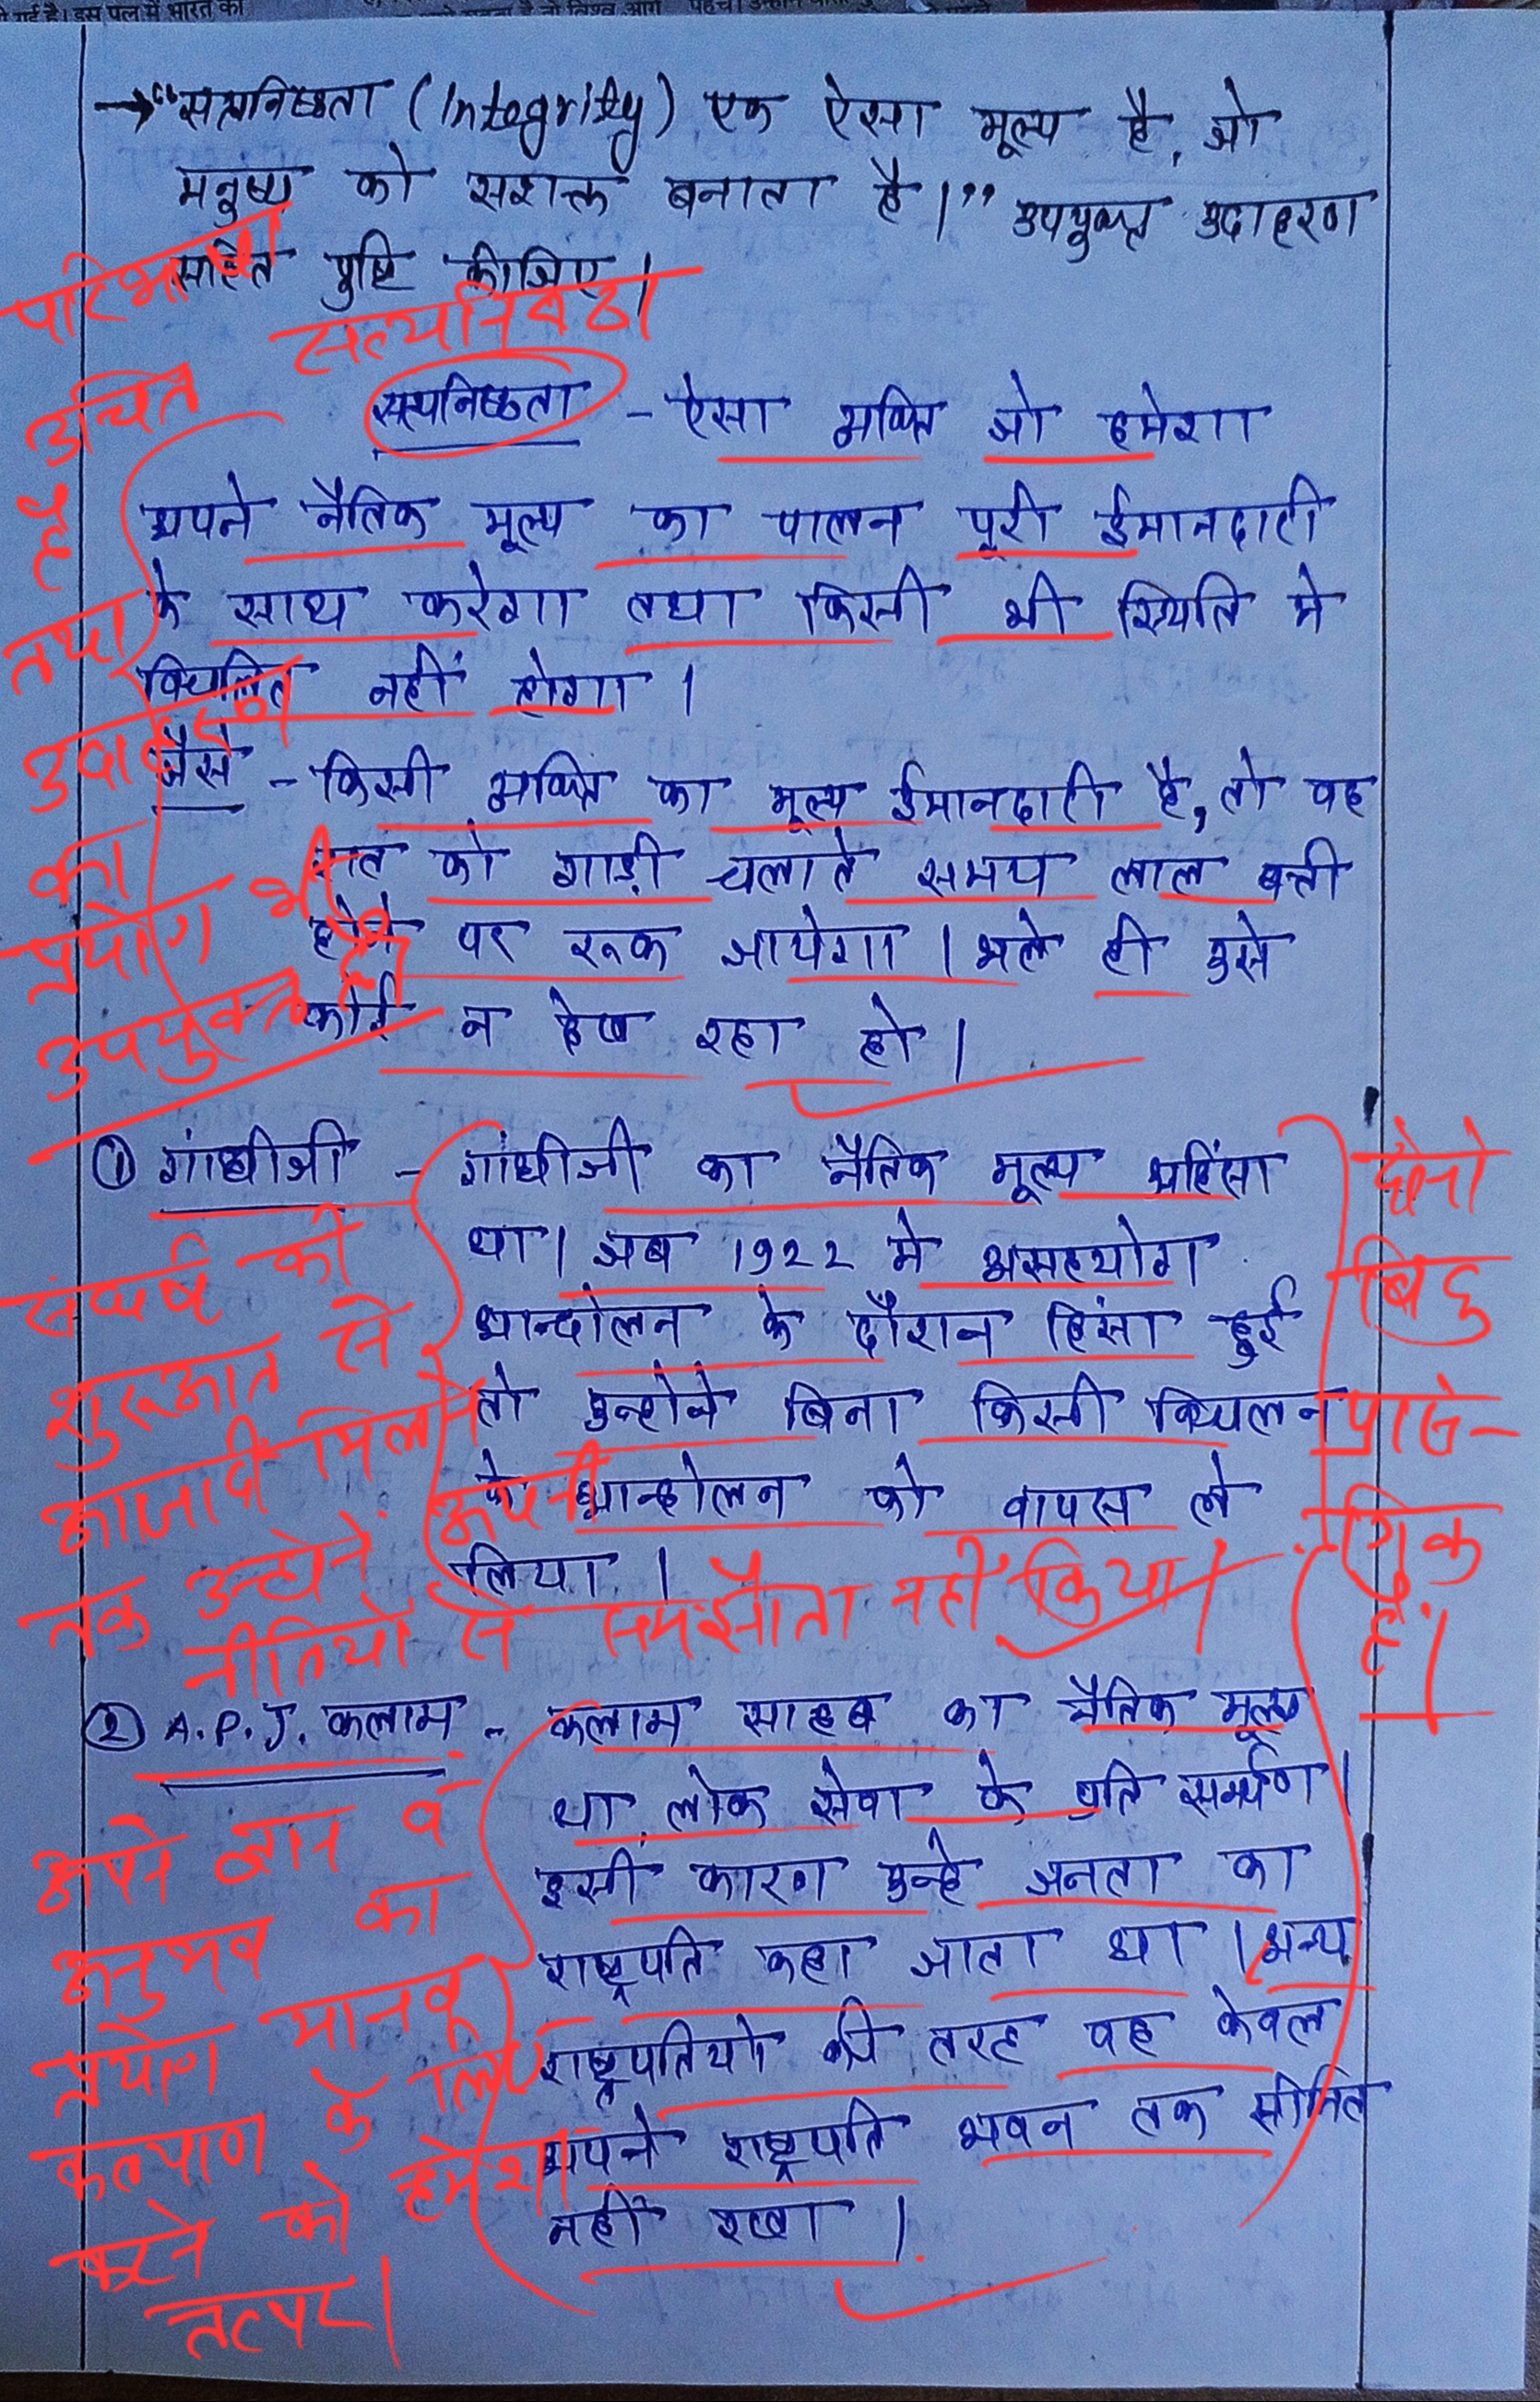 गई है। इस पल में भारत का
→ “सत्यनिष्ठता (Integrity) एक ऐसा मूल्य है, जो
मनुष्य को सशक्त बनाता है।” उपयुक्त उदाहरण
सहित पुष्टि कीजिए।
सत्यनिष्ठा
सत्यनिष्ठता - ऐसा व्यक्ति जो हमेशा
अपने नैतिक मूल्य का पालन पूरी ईमानदारी
के साथ करेगा तथा किसी भी स्थिति मे
विचलित नहीं होगा।
जैसे - किसी व्यक्ति का मूल्य ईमानदारी है, तो वह
रात को गाड़ी चलाते समय लाल बत्ती
होने पर रूक जायेगा। भले ही उसे
कोई न देख रहा हो।
परिभाषा
उचित
है
तथा
उदाहरण
का
प्रयोग भी
उपयुक्त है।
① गांधीजी - गांधीजी का नैतिक मूल्य अहिंसा
था। जब 1922 मे असहयोग
आन्दोलन के दौरान हिंसा हुई
तो उन्होने बिना किसी विचलन
के आन्दोलन को वापस ले
लिया।
संघर्ष की
शुरूआत से
आजादी मिलने
तक उन्होने अपनी
नीतियों से समझौता नहीं किया।
दोनो
बिंदु
प्रासं-
गिक
है।
② A.P.J. कलाम - कलाम साहब का नैतिक मूल्य
था लोक सेवा के प्रति समर्पण।
इसी कारण उन्हे जनता का
राष्ट्रपति कहा जाता था। अन्य
राष्ट्रपतियो की तरह वह केवल
अपने राष्ट्रपति भवन तक सीमित
नहीं रखा।
अपने ज्ञान व
अनुभव का
प्रयोग मानव
कल्याण के लिए
करने को हमेशा
तत्पर।